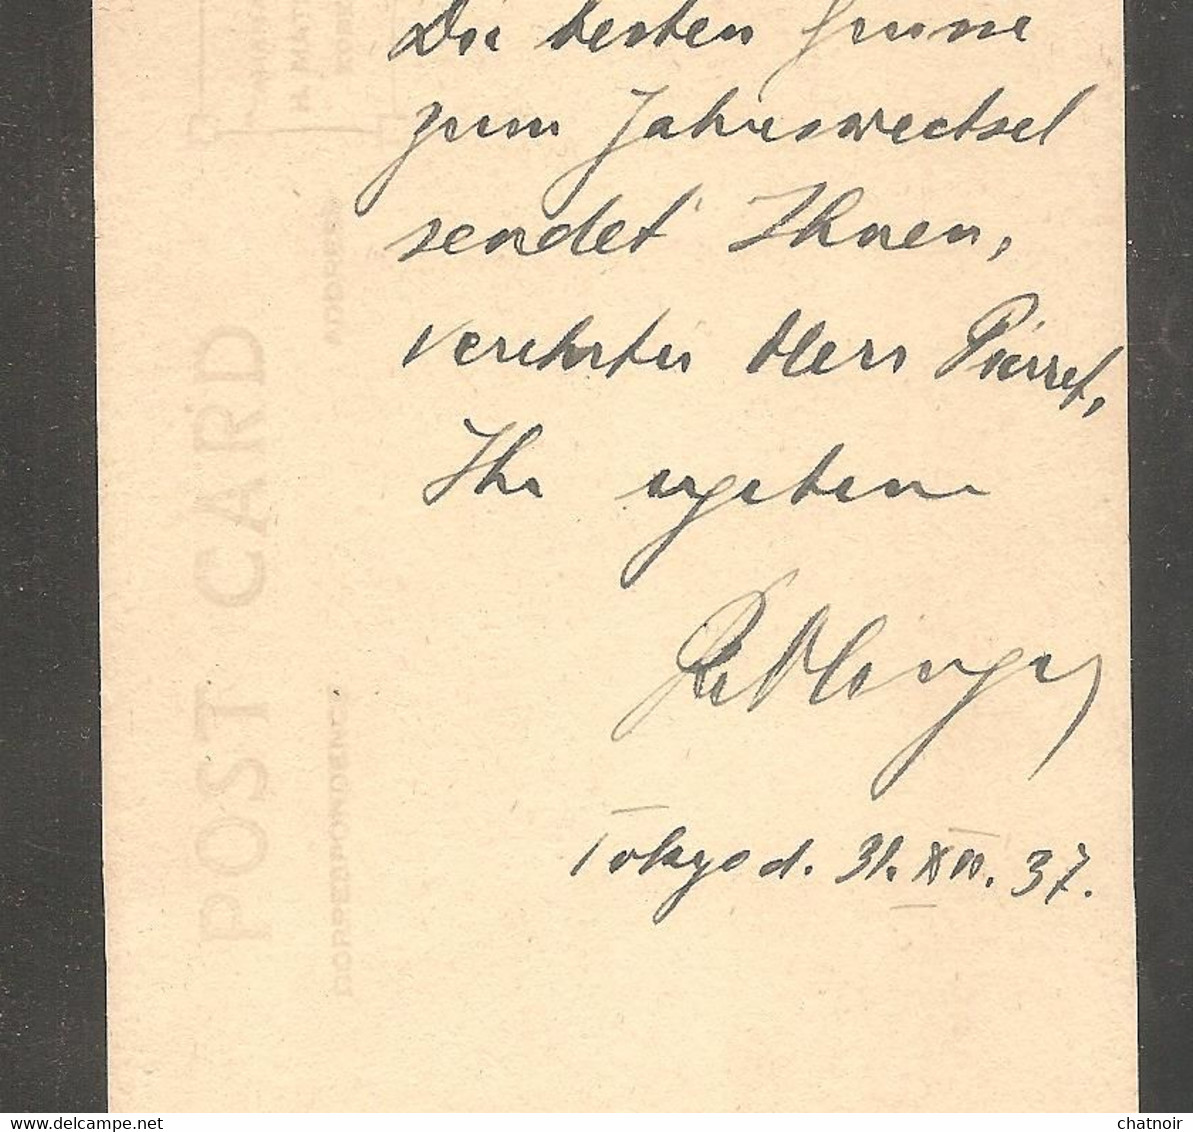 Die besten Grüsse
zum Jahreswechsel
sendet Ihnen,
verehrter Herr Pierret,
Ihr ergebener
Tokyo d. 31. XII. 37.
POST CARD
CORRESPONDENCE
ADDRESS
chatnoir